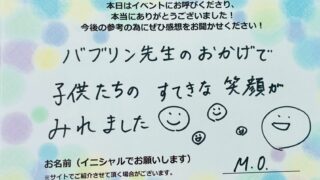 本日はイベントにお呼びくださり、
本当にありがとうございました！
今後の参考の為にぜひ感想をお聞かせください！
バブリン先生のおかげで
子供たちの すてきな 笑顔が
みれました
お名前（イニシャルでお願いします）
M.O.
※サイトでご紹介させて頂く場合がございます。